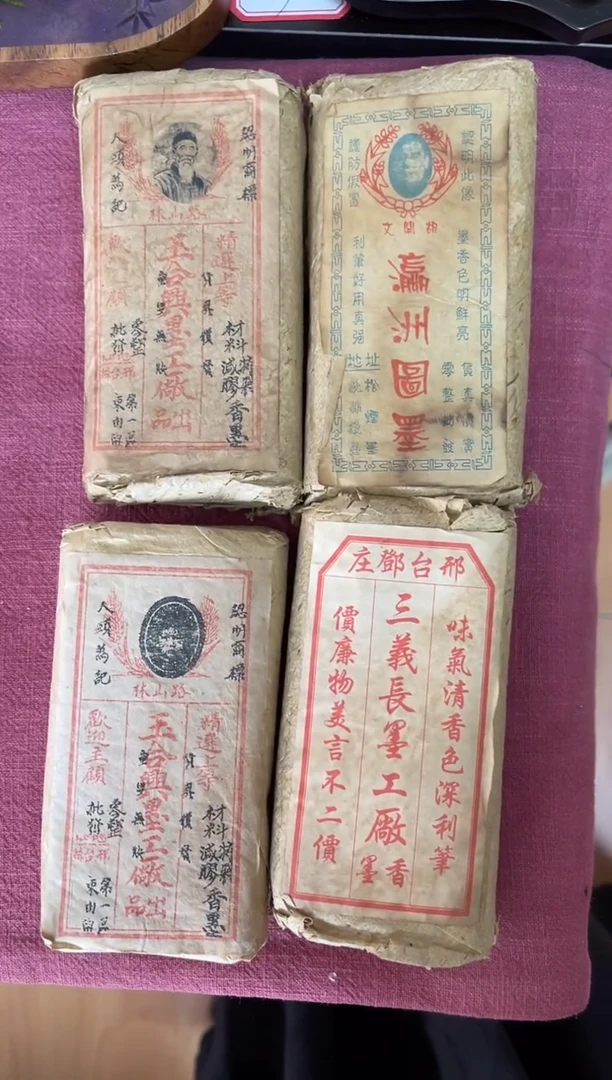 認明商標
人須為記
路山林
精選上等
材料
減膠香墨
玉合興墨工廠
出品
零整
批發
第一區
認明此像
謹防假冒
墨香色明鮮亮
貨真價實
瀛洲圖墨
利筆好用真強
地址
松煙墨
認明商標
人須為記
路山林
精選上等
材料
減膠香墨
玉合興墨工廠
出品
歡迎主顧
零整
批發
第一區
邢台鄧庄
味氣清香色深利筆
三義長墨工廠
香墨
價廉物美言不二價